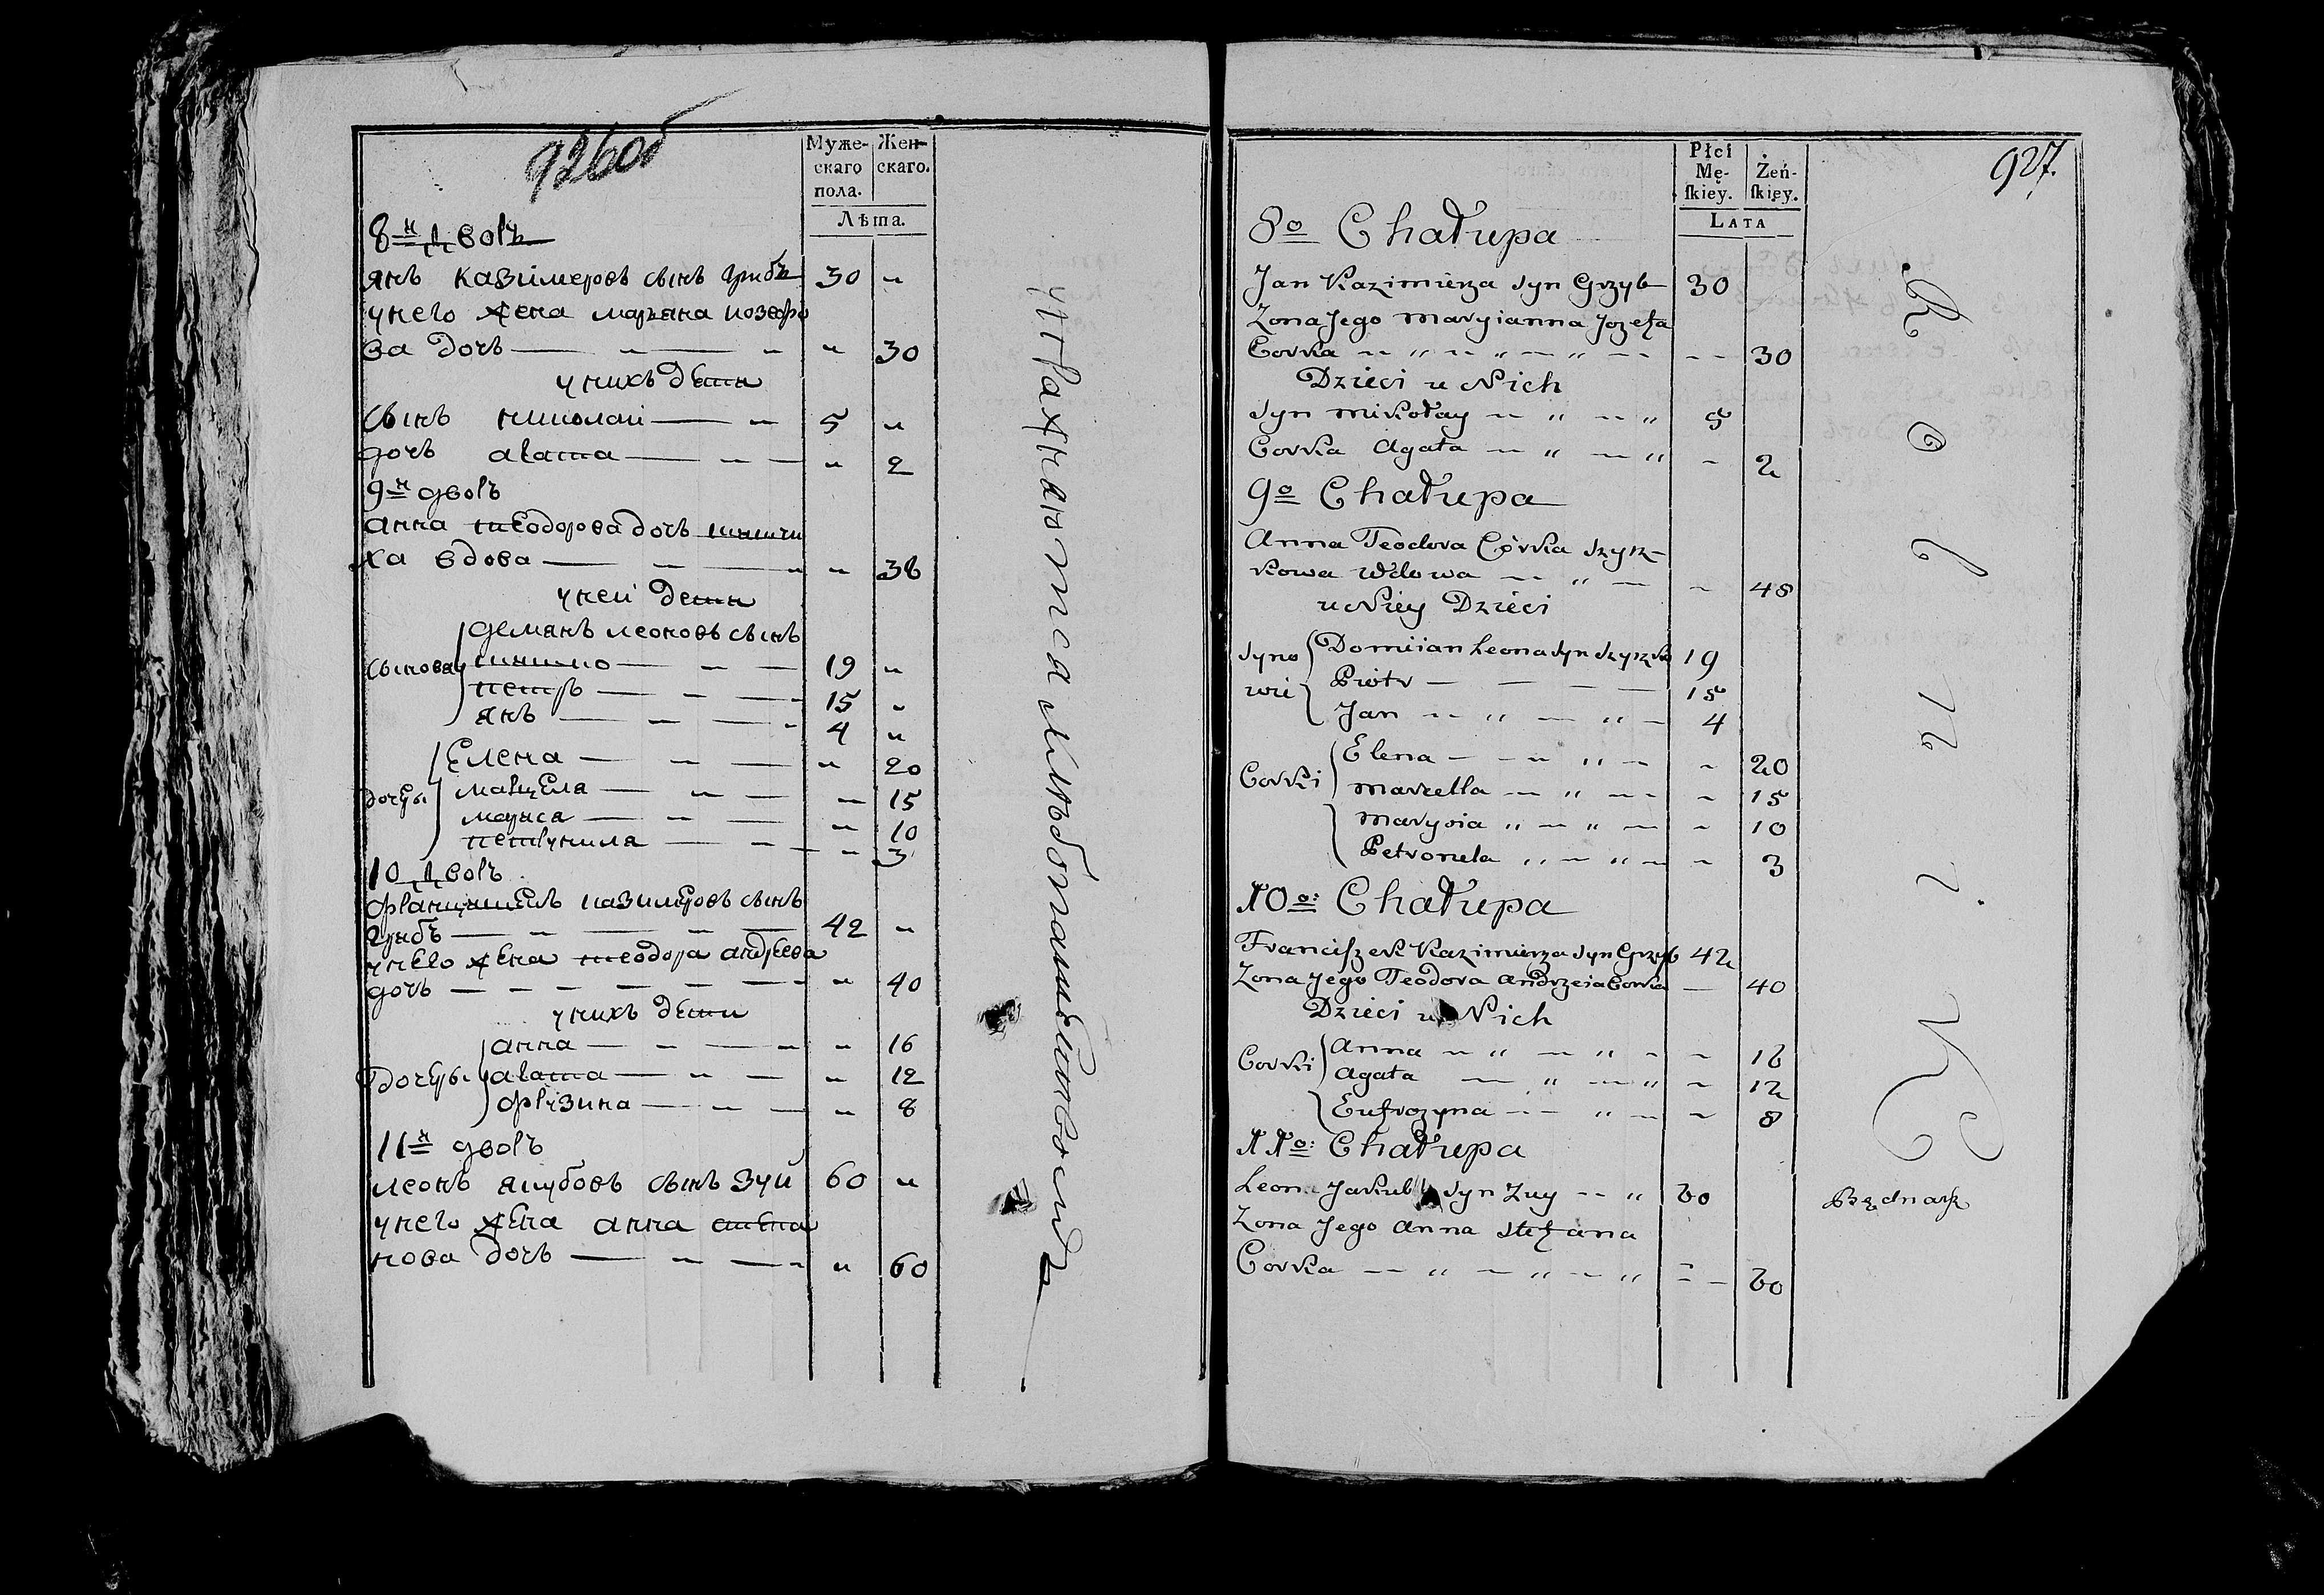 926об
Муже-
скаго
пола.
Жен-
скаго.
Лѣта.
8й дворъ
янъ казимеровъ сынъ грибъ 30 "
унего жена марьяна иозефо
ва дочь — " — " " 30
унихъ дети
сынъ николай — " 5 "
дочь агата — " — " 2
9й дворъ
анна теодорова дочь шишчи
ха вдова — " — " " 38
уней дети
демянъ леоновъ сынъ
сыновя шишко — " — 19 "
петръ — " — " 15 "
янъ — " — " 4 "
Елена — " — " 20
дочеры марцела — " — " 15
марися — " — " 10
петрунила — " — " 3
10 дворъ
францишекъ казимеровъ сынъ
грыбъ — " — " — 42 "
унего жена теодора андреева
дочь — — — — — — " 40
унихъ дети
анна — " — " " 16
дочеры агата — " — " 12
фрузина — " — " 8
11й дворъ
леонъ якубовъ сынъ Зуй 60 "
унего жена анна стефа
нова дочь — " — " " 60
упражнаются хлебопашеством
Płci
Mę-
ſkiey.
Żeń-
ſkiey.
Lata
927.
8o Chałupa
Jan Kazimierza syn Grzyb 30
Zona Jego Maryianna Jozefa
Corka — " — " — " — — 30
Dzieci u Nich
Syn Mikołay — " — " 5
Corka Agata — " — " - 2
9o Chałupa
Anna Teodora Córka Szysz-
kowa Wdowa — " — - 48
u Niey Dzieci
Syno Domiian Leona syn Szyszko 19
wie Piotr — — — — 15
Jan — " — " — 4
Elena — — " " — - 20
Corki Marcella — " — - - 15
Marysia " — " — - 10
Petronela " — " — - 3
10o: Chałupa
Franciſzek Kazimierza syn Grzyb 42
Zona Jego Teodora Andrzeia Corka — 40
Dzieci u Nich
Corki Anna — " — " - - 16
Agata — " — " - 12
Eufrozyna — — " — - 8
11o: Chałupa
Leon Jakuba syn Zuy — " 60
Zona Jego Anna Stefana
Corka — " — " — " — - 60
Rolnicy
Bednarz